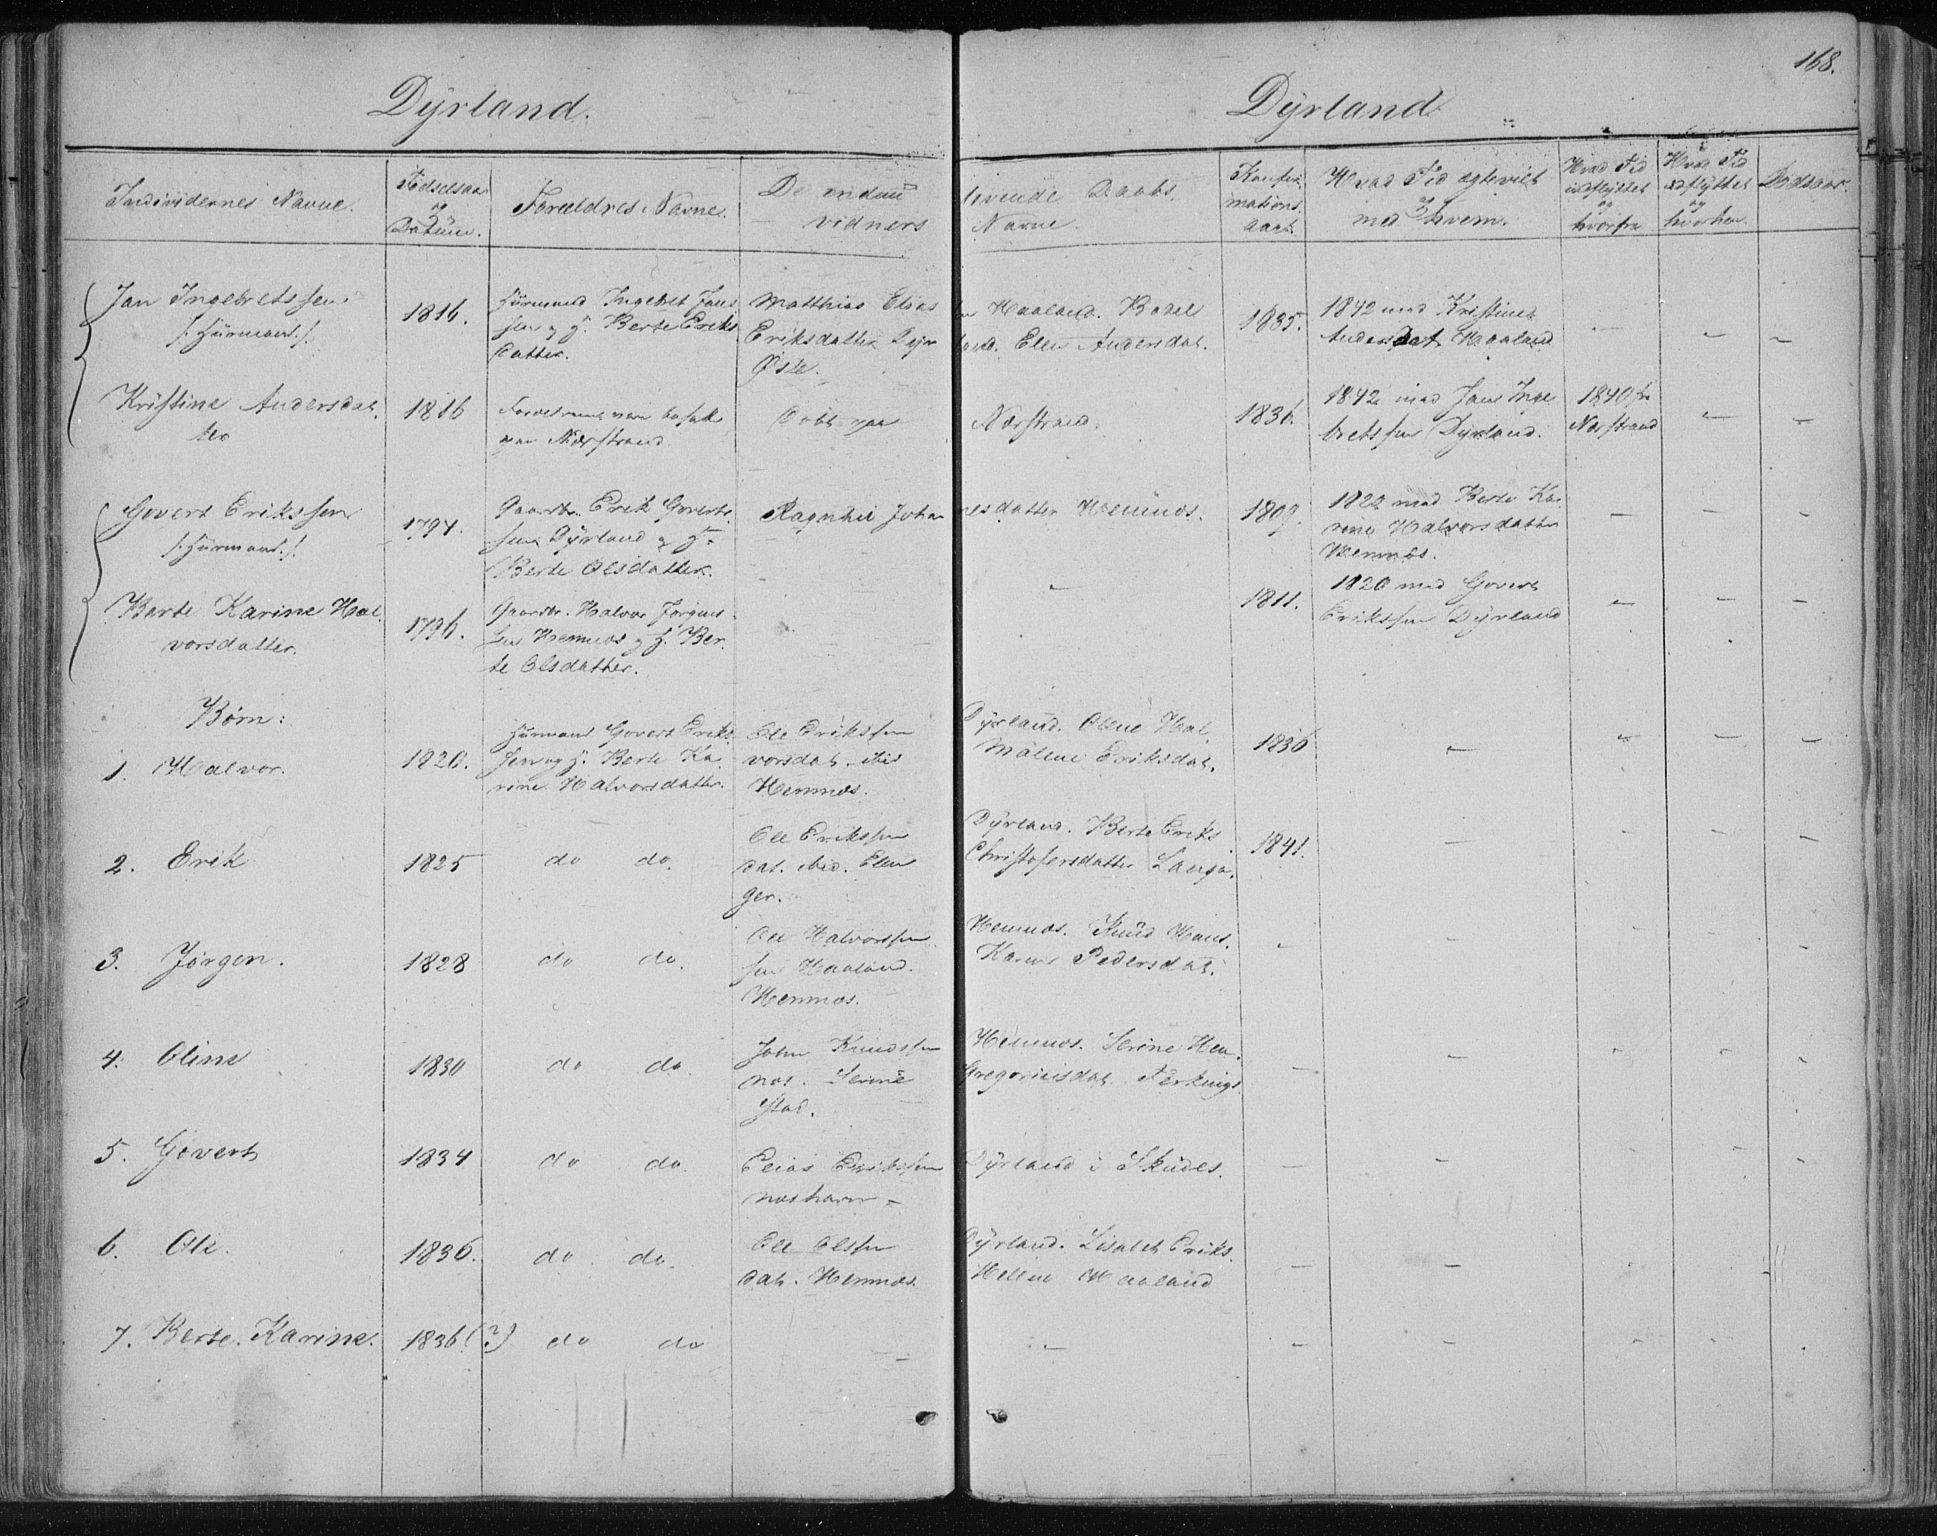 168.
Dÿrland.
Dÿrland
Individernes Navne.
Fødselsaar og Datum.
Forældres Navne.
De endnu levende Daabsvidners Navne.
Konfirmations Aar.
Hvad Tid ægteviet med hvem.
Hvad Tid indflyttet og hvorfra
Hvad Tid udflyttet og hvorhen
Dødsaar.
Jan Ingebretssen
/: Huusmand :/
1816.
Huusmand Ingebret Jans
sen og H. Berte Eriks
datter.
Matthias Elias
Haaland.
Eriksdatter Dyr
land. Elen Andersdat.
Øste.
1835.
1842 med Kristine
Andersdat Haaland
–
–
–
Kristine Andersdat
ter
1816
paa Nærstrand.
Døbt paa
Nærstrand.
1836.
1842 med Jans Inge
bretssen Dÿrland.
1840 fra
Nærstrand
–
–
Govert Erikssen
/: Huusmand :/
1794.
Gaardbr. Erik Goverts
sen Dÿrland og H.
Berte Olsdatter.
Ragnhil Johan
nesdatter Hemnæs.
1809.
1822 med Berte Ka
rine Halvorsdatter
Hemnæs.
–
–
–
Berte Karine Hal
vorsdatter.
1796.
Gaardbr. Halvor Jørgens
sen Hemnæs og H. Ber
te Olsdatter.
–
1811.
1820 med Govert
Erikssen Dÿrland
–
–
–
Børn:
1. Halvor.
1820.
Huusmand Govert Eriks
sen og H. Berte Ka
rine Halvorsdatter.
Ole Erikssen
Dÿrland. Oline Hal
vorsdat. ibid
Malene Eriksdat.
Hemnæs.
1836
–
–
–
–
2. Erik
1825
do do.
Ole Erikssen
Dÿrland. Berte Eriks
dat. ibid. Elen
Christofersdatter Langa
ger.
1841.
–
–
–
–
3. Jørgen.
1828
do do.
Ole Halvorssen
Hemnæs. Knud Hans
sen Haaland.
Karen Pedersdat.
Hemnæs.
–
–
–
–
–
4. Oline
1830
do do.
John Knudssen
Hemnæs. Serine Hem
næs. Serine
Gregoriusdat. Ferkings
stad.
–
–
–
–
–
5. Govert
1834
do do.
Elias Erikssen
Dÿrland i Skudes
næshavn –
–
–
–
–
–
6. Ole.
1836.
do do.
Ole Olsen
Dÿrland. Lisabet Eriks
dat. Hemnæs.
Helene Haaland
–
–
–
–
–
7. Berte Karine.
1836(?)
do do
–
–
–
–
–
–
–